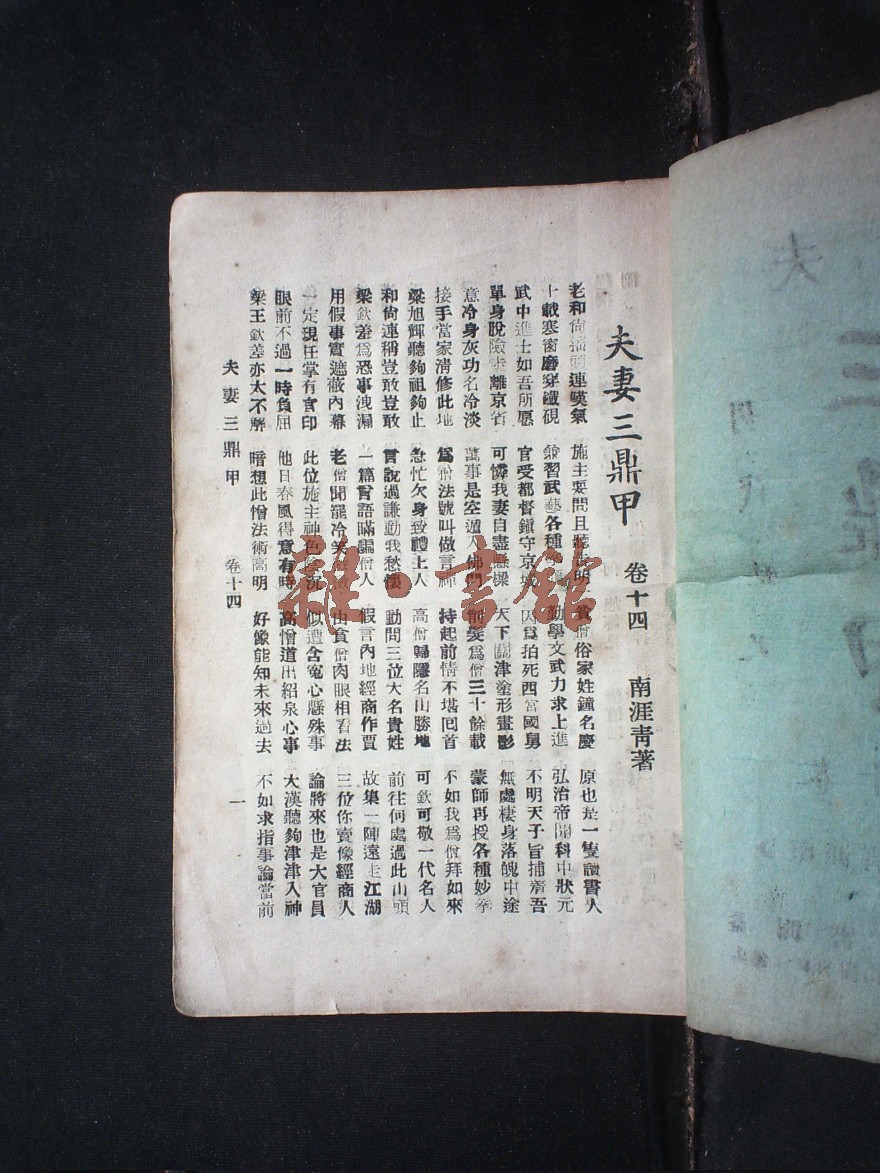 夫妻三鼎甲 卷十四 南涯靑著
老和尙 頭連嘆氣 施主要問且聽 明 貧僧俗家姓鐘名慶 原也是一隻讀書人
十載寒窗磨穿鐵硯 兼習武藝各種 勤學文武力求上進 弘治帝開科中狀元
武中進士如吾所愿 官受都督鎭守京城 因爲拍死西宮國舅 不明天子旨捕 吾
單身脫險 離京省 可憐我妻自盡懸樑 天下關津塗形畫影 無處棲身落魄中途
意冷身灰功名冷淡 萬事是空遁入佛門 削髮爲僧三十餘載 蒙師再授各種妙拳
接手當家淸修此地 爲僧法號叫做言禪 持起前情不堪囘首 不如我爲僧拜如來
梁旭輝聽夠祖夠止 急忙欠身致禮上人 高僧歸隱名山勝地 可欽可敬一代名人
和尙連稱豈敢豈敢 言說過謙動我愁懷 動問三位大名貴姓 前往何處過此山頭
梁欽差爲恐事洩漏 一篇言語瞞騙僧人 假言內地經商作賈 故集一陣遠走江湖
用假事實遮蔽內幕 老僧聞罷冷笑 由貧僧肉眼相看法 三位你賣像經商人
一定現任掌有官印 此位施主神色陰沉 似遭含寃心懸殊事 論將來也是大官員
眼前不過一時負屈 他日春風得意有時 高僧道出紹泉心事 大漢聽夠津津入神
梁王欽差亦太不解 暗想此僧法術高明 好像能知未來過去 不如求指事論當前
夫妻三鼎甲 卷十四 一
雜·書館
夫
三